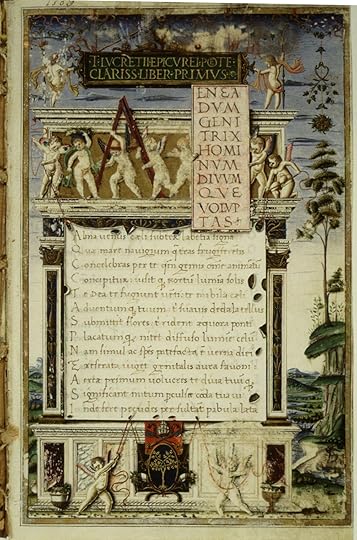 T·LVCRETII·EPICVREI·POTE
CLARISS·LIBER·PRIMVS·
A
ENEA
DVM
GENI
TRIX
HOMI
NVM
DIVVM
QVE
VOLVP
TAS
Alma venus cæli subter labentia signa
Quæ mare navigerum q terras frugiferentis
Concelebras per te qm genus omne animantũ
Concipitur visitq exortũ lumina solis
Te Dea te fugiunt venti te nubila cæli
Adventumq tuum: t suavis dædala tellus
Submittit flores: t rident æquora ponti
Placatumq nitet diffuso lumine cælũ
Nam simul ac spes patefacta ẽ verna diei
Et reserata viget genitalis aura favoni
Aeriæ primum volucres te diva tuũq
Significant initum perculsæ corda tua vi
Inde feræ pecudes persultant pabula læta